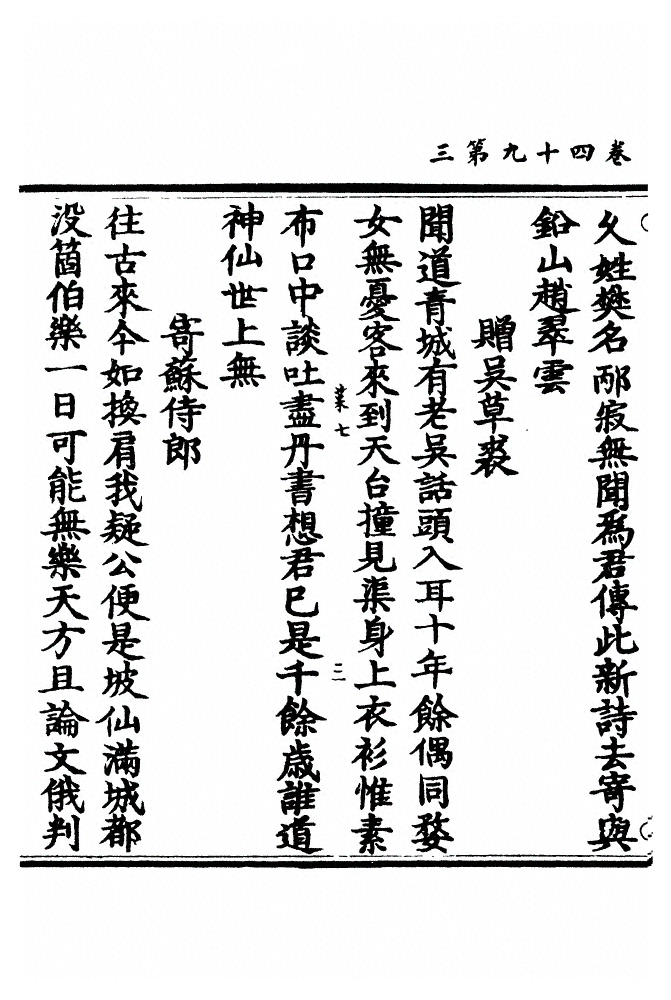 卷四十九第三
久姓樊名邴寂無聞爲君傳此新詩去寄與
鉛山趙翠雲
贈吳草裘
聞道青城有老吳話頭入耳十年餘偶同婺
女無憂客來到天台撞見渠身上衣衫惟素
菐七
二
布口中談吐盡丹書想君巳是千餘歳誰道
神仙世上無
寄蘇侍郎
往古來今如換肩我疑公便是坡仙滿城都
没箇伯樂一日可能無樂天方且論文俄判